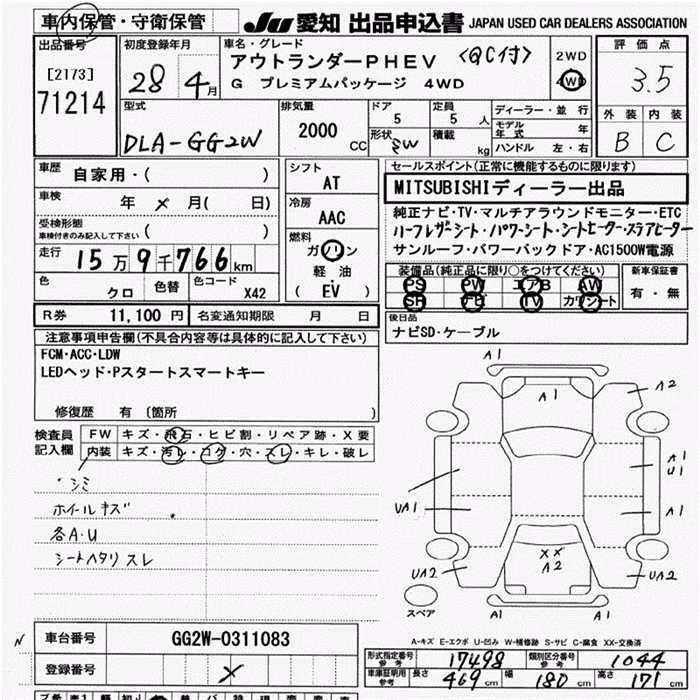 車内保管・守衛保管
JU 愛知 出品申込書 JAPAN USED CAR DEALERS ASSOCIATION
出品番号
[2173]
71214
初度登録年月
28年4月
車名・グレード
アウトランダーPHEV 〈QC付〉
G プレミアムパッケージ 4WD
2WD
4WD
評価点
3.5
外装 内装
B C
型式
DLA-GG2W
排気量
2000 CC
ドア
5
形状
5W
定員
5 人
積載
kg
ディーラー・並行
モデル年式 年
ハンドル 左・右
車歴
自家用・( )
車検
年 × 月( 日)
受検形態
車検付きのみ記入して下さい ( )
走行
15万9千766km
色
クロ
色替
色コード
X42
シフト
AT
冷房
AAC
燃料
ガソリン
軽油
( EV )
セールスポイント(正常に機能するものに限ります)
MITSUBISHIディーラー出品
純正ナビ・TV・マルチアラウンドモニター・ETC
ハーフレザーシート・パワーシート・シートヒーター・ステアヒーター
サンルーフ・パワーバックドア・AC1500W電源
装備品(純正品に限り○をつけてください)
PS PW エアB AW
SR ナビ TV カワシート
新車保証書
有・無
R券 11,100 円
名変通知期限 月 日
後日品
ナビSD・ケーブル
注意事項申告欄(不具合内容等は具体的に記入して下さい)
FCM・ACC・LDW
LEDヘッド・Pスタートスマートキー
修復歴 有 〔箇所 〕
検査員記入欄
FW キズ・飛石・ヒビ割・リペア跡・X要
内装 キズ・汚レ・コゲ・穴・スレ・キレ・破レ
・シミ
ホイールキズ
各A・U
シートヘタリ スレ
A1
A1
A2
A1
U1
UA1
A1
XX
A2
UA2
UA2
スペア
A1
A1
A-キズ E-エクボ U-凹み W-補修跡 S-サビ C-腐食 XX-交換済
N
車台番号 GG2W-0311083
登録番号 ×
形式指定番号 参考 17498
類別区分番号 参考 1044
車庫証明用 参考 長さ 469 cm 幅 180 cm 高さ 171 cm